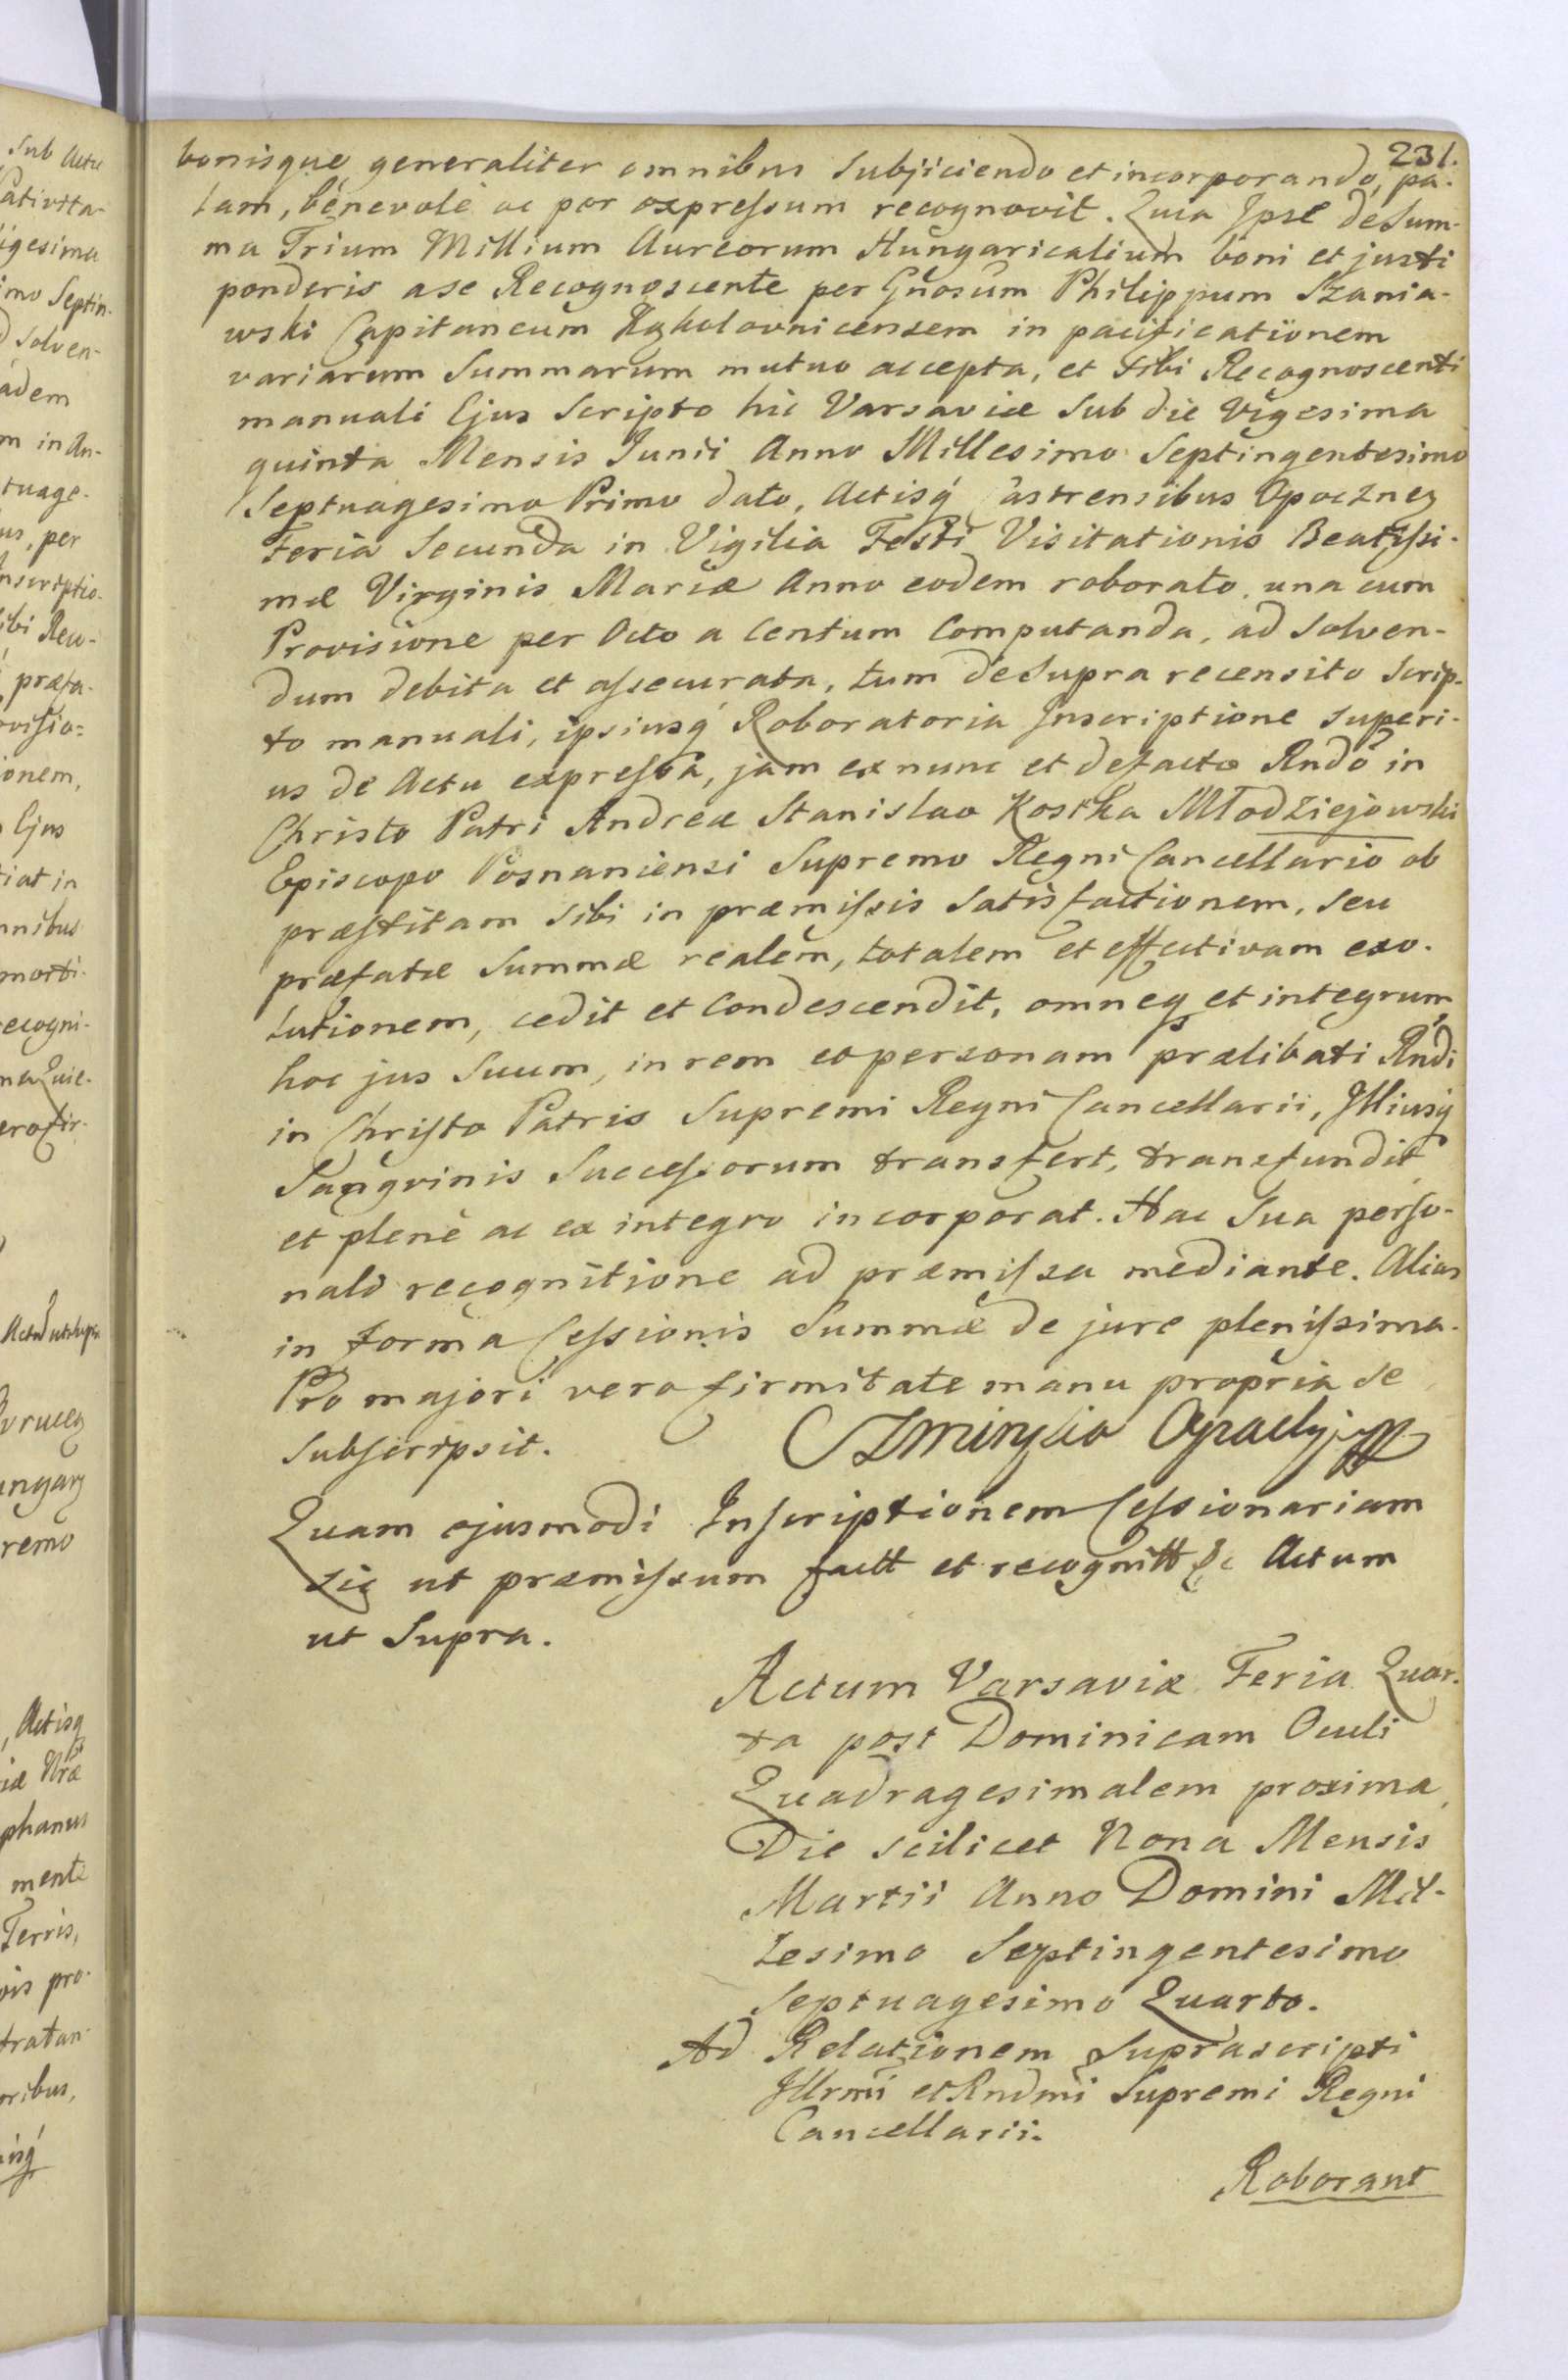 231.
bonisque generaliter omnibus subjiciendo et incorporando, pa-
lam, benevolè ac per expressum recognovit. Quia Ipse de Sum-
ma Trium Millium Aureorum Hungaricalium boni et justi
ponderis a se Recognoscente per Gnosum Philippum Szania-
wski Capitaneum Kąkolovnicensem in pacificationem
variarum Summarum mutuo accepta, et sibi Recognoscenti
manuali Ejus Scripto hic Varsaviæ sub die Vigesima
quinta Mensis Junii Anno Millesimo Septingentesimo
Septuagesimo Primo dato, Actisq́ Castrensibus Opocznen
Feria Secunda in Vigilia Festi Visitationis Beatissi-
mæ Virginis Mariæ Anno eodem roborato, una cum
Provisione per Octo a Centum Computanda, ad solven-
dum debita et assecurata, tum de supra recensito scrip-
to manuali, ipsiusq́ Roboratoria Inscriptione superi-
us de Actu expressa, jam ex nunc et defacto Rndō in
Christo Patri Andreæ Stanislao Kostka Młodziejowski
Episcopo Posnaniensi Supremo Regni Cancellario ob
præstitam sibi in præmissis satisfactionem, seu
præfatæ Summæ realem, totalem et effectivam exo-
lutionem, cedit et Condescendit, omneq et integrum
hoc jus suum, in rem ac personam prælibati Rndi
in Christo Patris Supremi Regni Cancellarii, Illiusq́
Sangvinis Successorum transfert, transfundit
et plenè ac ex integro incorporat. Hac sua perso-
nali recognitione ad præmissa mediante. Alias
in forma Cessionis Summæ de jure plenissima.
Pro majori vero firmitate manu propria se
subscripsit.
Quam ejusmodi Inscriptionem Cessionariam
sic ut præmissum factt et recognitt &c Actum
ut Supra.
Actum Varsaviæ Feria Quar-
ta post Dominicam Oculi
Quadragesimalem proxima,
Die scilicet Nona Mensis
Martii Anno Domini Mil-
lesimo Septingentesimo
Septuagesimo Quarto.
Ad Relationem suprascripti
Illrmi et Rndmi Supremi Regni
Cancellarii.
Roborant